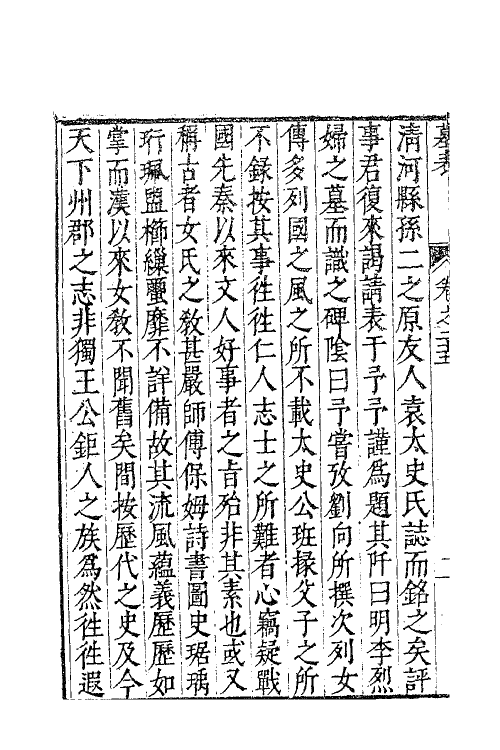 墓表 卷之二十五 二
清河縣孫二之原友人袁太史氏誌而銘之矣評
事君復來謁請表于予予謹爲題其阡曰明李烈
婦之墓而識之碑陰曰予嘗攷劉向所撰次列女
傳多列國之風之所不載太史公班掾父子之所
不錄按其事徃徃仁人志士之所難者心竊疑戰
國先秦以來文人好事者之㫖殆非其素也或又
稱古者女氏之敎甚嚴師傅保姆詩書圖史琚瑀
珩珮盥櫛繰蠒靡不詳備故其流風蘊義歷歷如
掌而漢以來女敎不聞舊矣間按歷代之史及今
天下州郡之志非獨王公鉅人之族爲然徃徃遐